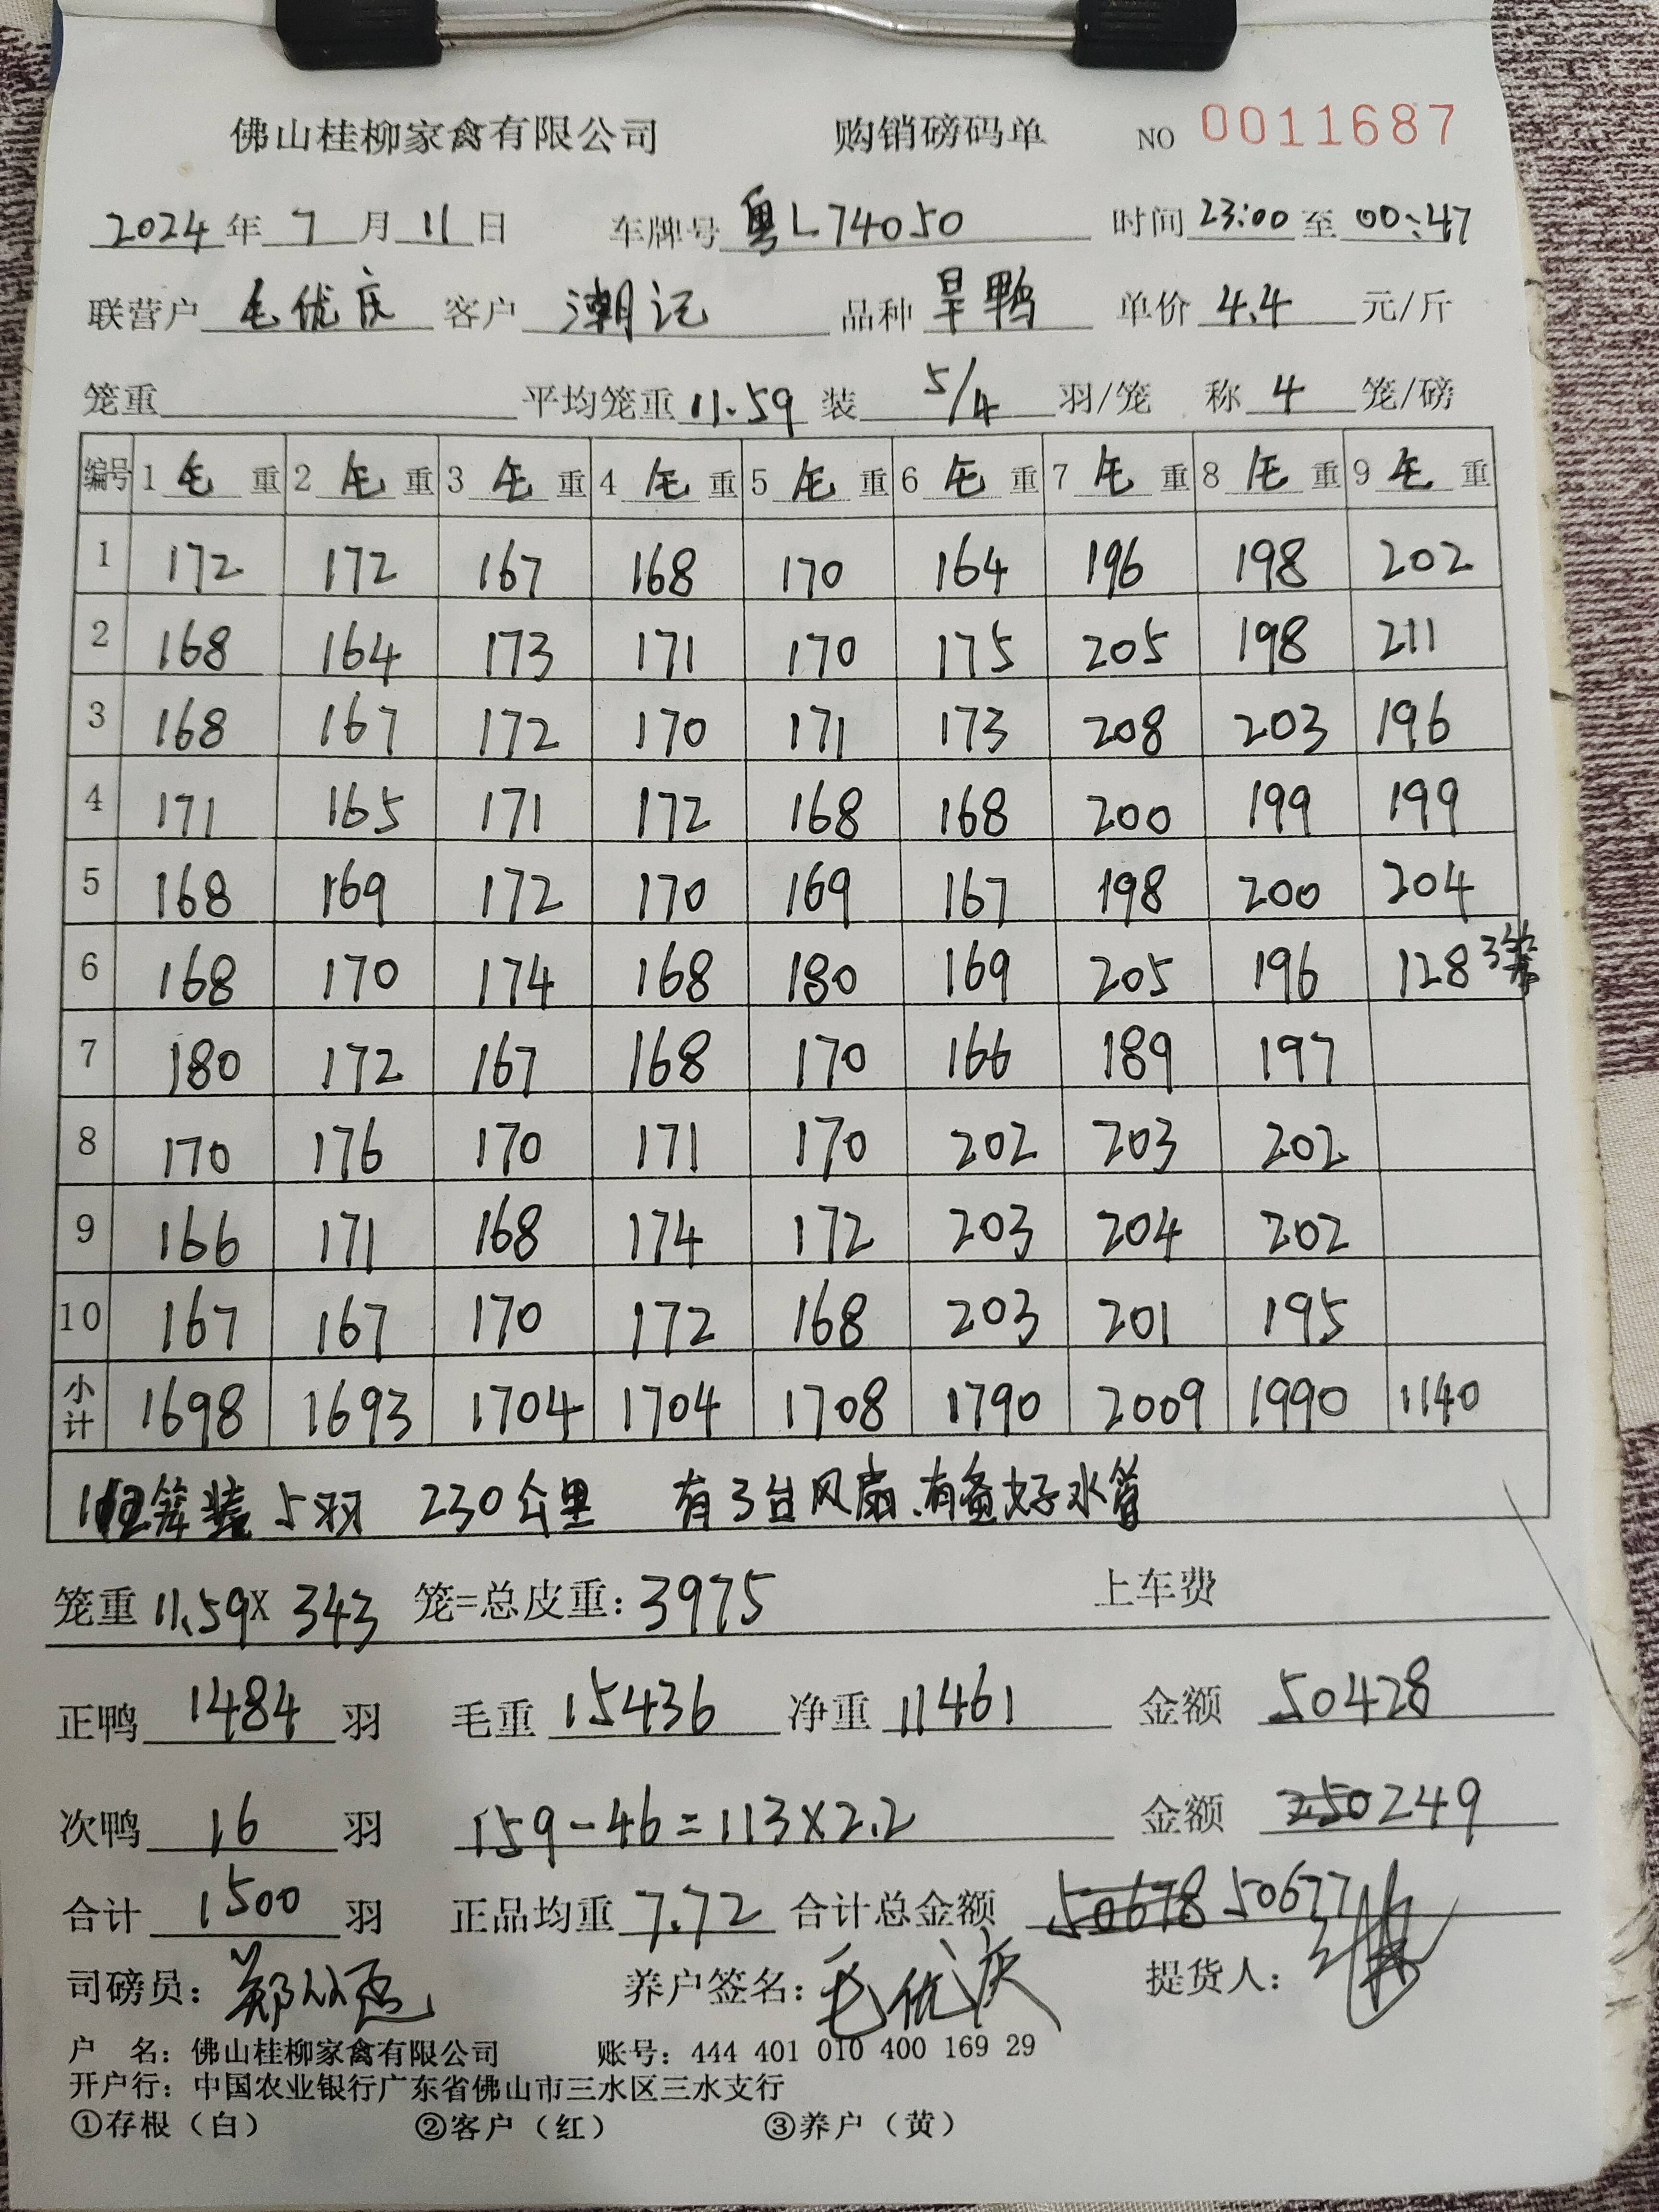 佛山桂柳家禽有限公司 购销磅码单 NO 0011687
2024年7月11日 车牌号 粤L74050 时间 23:00 至 00:47
联营户 毛优庆 客户 潮记 品种 旱鸭 单价 4.4 元/斤
笼重 平均笼重 11.59 装 5/4 羽/笼 称 4 笼/磅
编号 1 毛 重 2 毛 重 3 毛 重 4 毛 重 5 毛 重 6 毛 重 7 毛 重 8 毛 重 9 毛 重
1 172 172 167 168 170 164 196 198 202
2 168 164 173 171 170 175 205 198 211
3 168 167 172 170 171 173 208 203 196
4 171 165 171 172 168 168 200 199 199
5 168 169 172 170 169 167 198 200 204
6 168 170 174 168 180 169 205 196 128 3笼
7 180 172 167 168 170 166 189 197
8 170 176 170 171 170 202 203 202
9 166 171 168 174 172 203 204 202
10 167 167 170 172 168 203 201 195
小计 1698 1693 1704 1704 1708 1790 2009 1990 1140
装 5羽 230公里 有3台风扇.有备好水管
笼重 11.59 X 343 笼=总皮重: 3975 上车费
正鸭 1484 羽 毛重 15436 净重 11461 金额 50428
次鸭 16 羽 159-46=113X2.2 金额 250 249
合计 1500 羽 正品均重 7.72 合计总金额 50678 50677
司磅员: 郑 养户签名: 毛优庆 提货人:
户 名: 佛山桂柳家禽有限公司 账号: 444 401 010 400 169 29
开户行: 中国农业银行广东省佛山市三水区三水支行
①存根（白） ②客户（红） ③养户（黄）